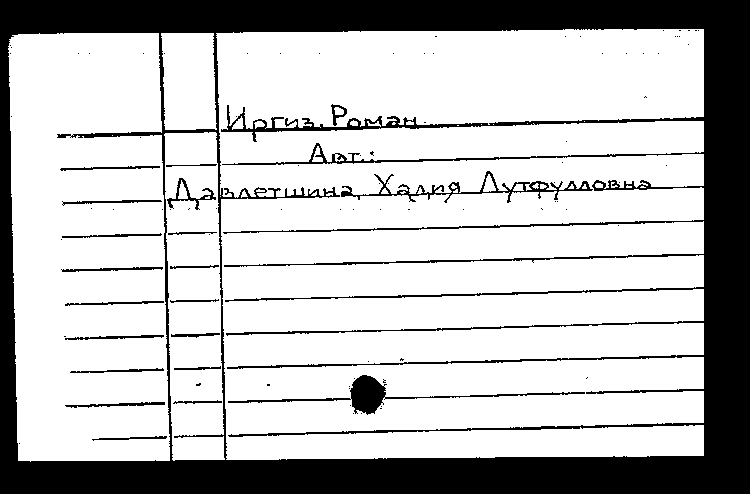 Иргиз. Роман
Авт.:
Давлетшина, Хадия Лутфулловна